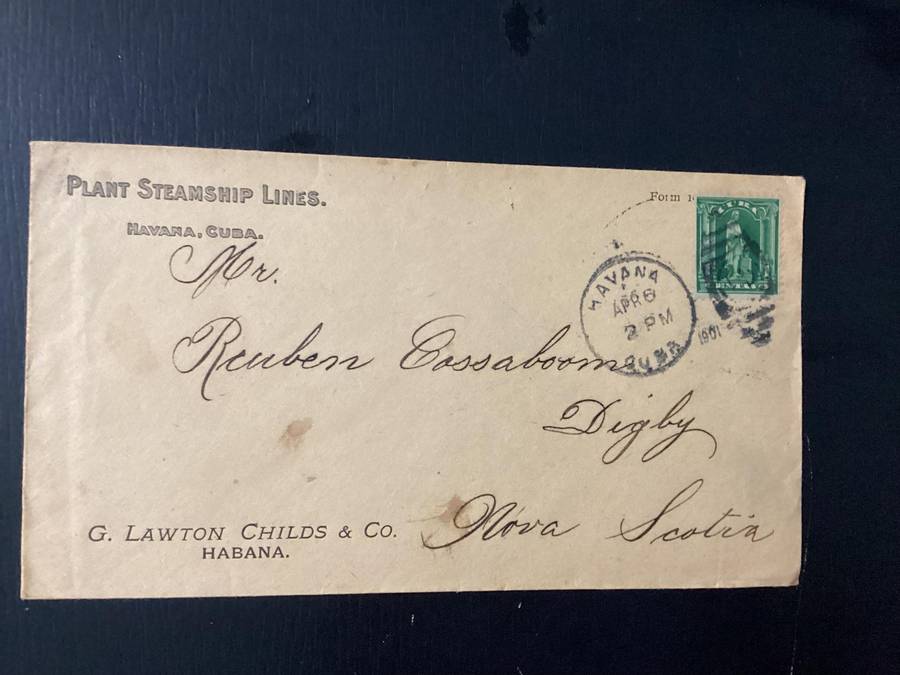 PLANT STEAMSHIP LINES.
HAVANA, CUBA.
Form
CUBA
CENTAVO
HAVANA
APR 6
2 PM
CUBA
1901
Mr.
Reuben Cossaboom
Digby
Nova Scotia
G. LAWTON CHILDS & CO.
HABANA.